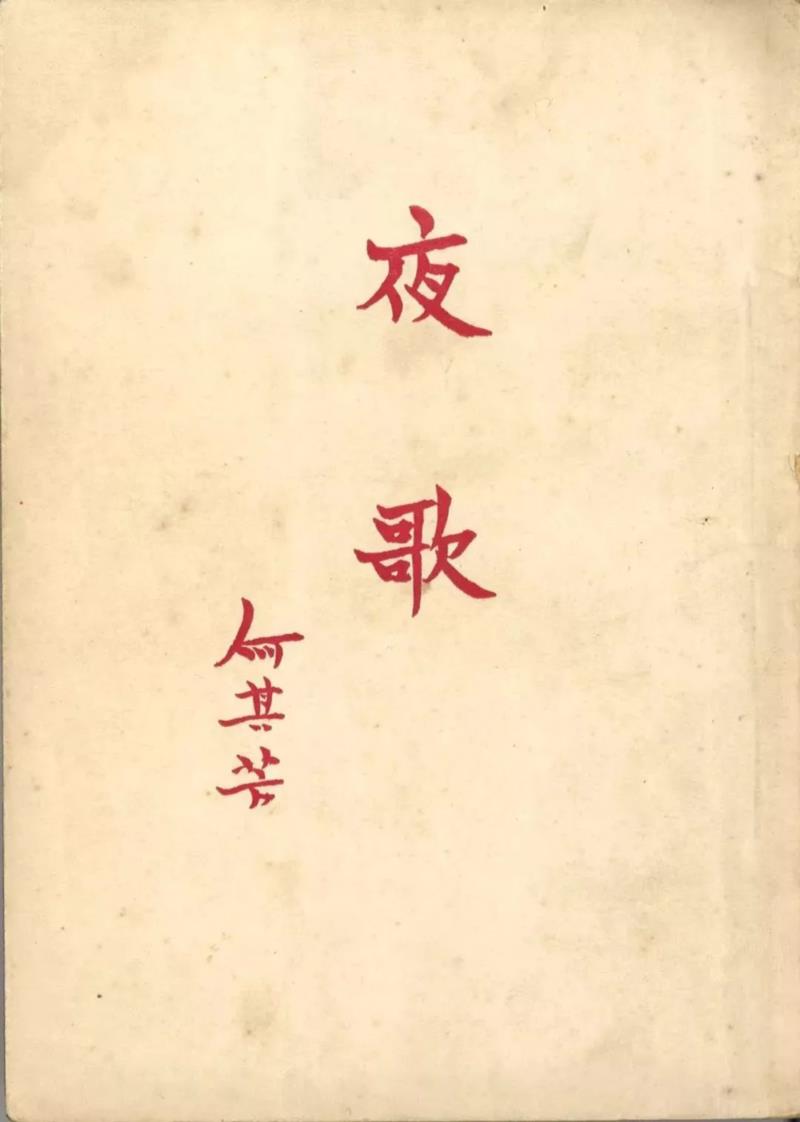 夜歌
何其芳